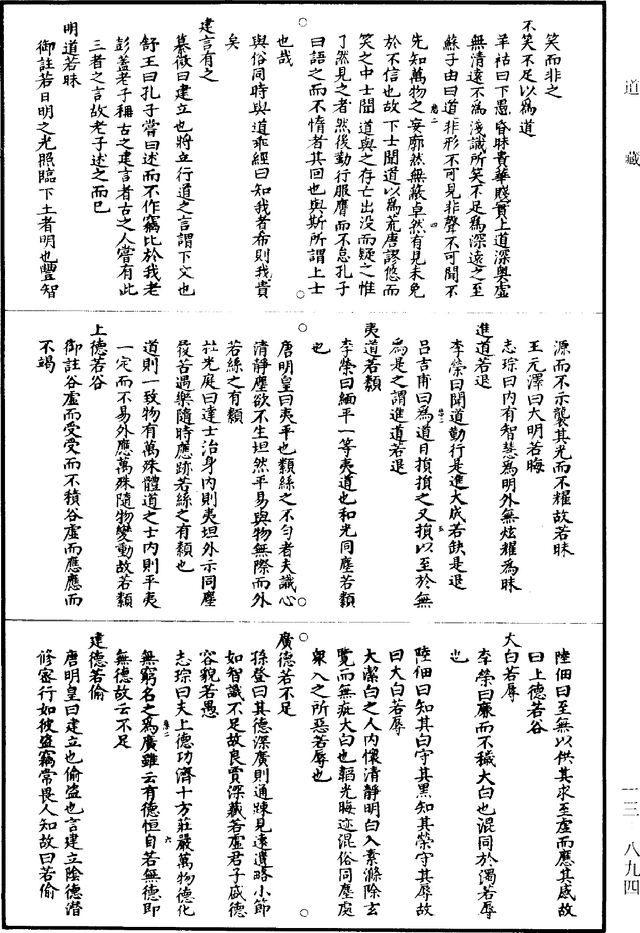 道藏
笑而非之
不笑不足以為道
羊祜曰下愚昏昧貴華賤實上道深奧虛
無清遠不為淺識所笑不足為深遠之至
蘇子由曰道非形不可見非聲不可聞不
先知萬物之妄廓然無蔽卓然有見未免
於不信也故下士聞道以為荒唐謬悠而
笑之中士聞道與之存亡出沒而疑之惟
了然見之者然後勤行服膺而不怠孔子
曰語之而不惰者其回也與斯所謂上士
也哉
與俗同時與道乖經曰知我者希則我貴
矣
建言有之
纂微曰建立也將立行道之言謂下文也
舒王曰孔子嘗曰述而不作竊比於我老
彭蓋老子稱古之建言者古之人嘗有此
三者之言故老子述之而已
明道若昧
御註若日明之光照臨下土者明也豐智
源而不示襲其光而不耀故若昧
王元澤曰大明若晦
志琮曰內有智慧為明外無炫耀為昧
進道若退
李榮曰聞道勤行是進大成若缺是退
呂吉甫曰為道日損損之又損以至於無
為是之謂進道若退
夷道若纇
李榮曰緬平一等夷道也和光同塵若纇
也
唐明皇曰夷平也纇絲之不勻者夫識心
清靜塵欲不生坦然平易與物無際而外
若絲之有纇
杜光庭曰達士治身內則夷坦外示同塵
筱苦遇樂隨時應跡若絲之有纇也
道則一致物有萬殊體道之士內則平夷
一定而不易外應萬殊隨物變動故若纇
上德若谷
御註谷虛而受受而不積谷虛而應應而
不竭
陸佃曰至無以供其求至虛而應其感故
曰上德若谷
大白若辱
李榮曰廉而不穢大白也混同於濁若辱
也
陸佃曰知其白守其黑知其榮守其辱故
曰大白若辱
大潔白之人內懷清靜明白入素滌除玄
覽而無疵大白也韜光晦迹混俗同塵處
眾人之所惡若辱也
廣德若不足
孫登曰其德深廣則通疎見遠遺略小節
如智識不足故良賈深藏若虛君子盛德
容貌若愚
志琮曰夫上德功濟十方莊嚴萬物德化
無窮名之為廣雖云有德恒自若無德即
無德故云不足
建德若偷
唐明皇曰建立也偷盜也言建立陰德潛
修密行如彼盜竊常畏人知故曰若偷
一三 八九四